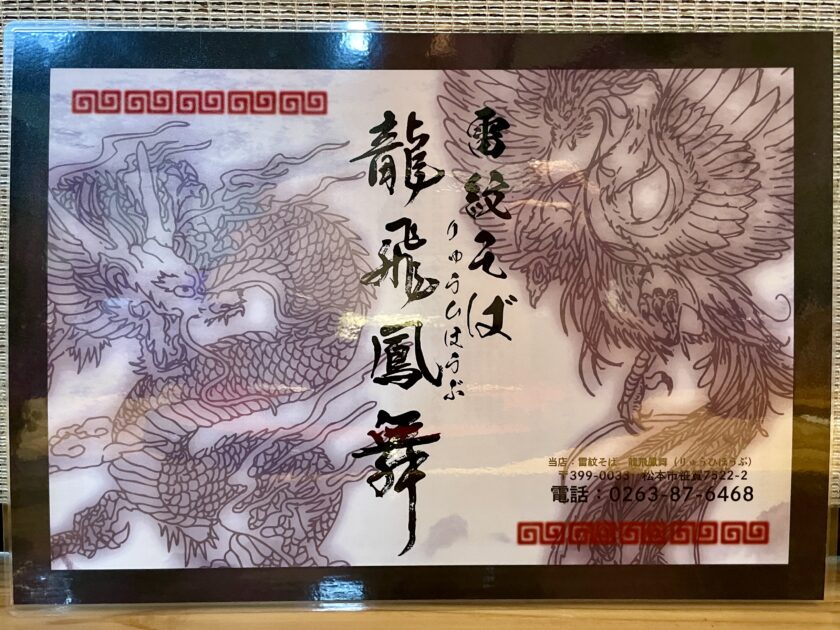 雷紋そば
龍飛鳳舞
りゅうひほうぶ
当店：雷紋そば　龍飛鳳舞（りゅうひほうぶ）
〒399-0033　松本市笹賀7522-2
電話：0263-87-6468